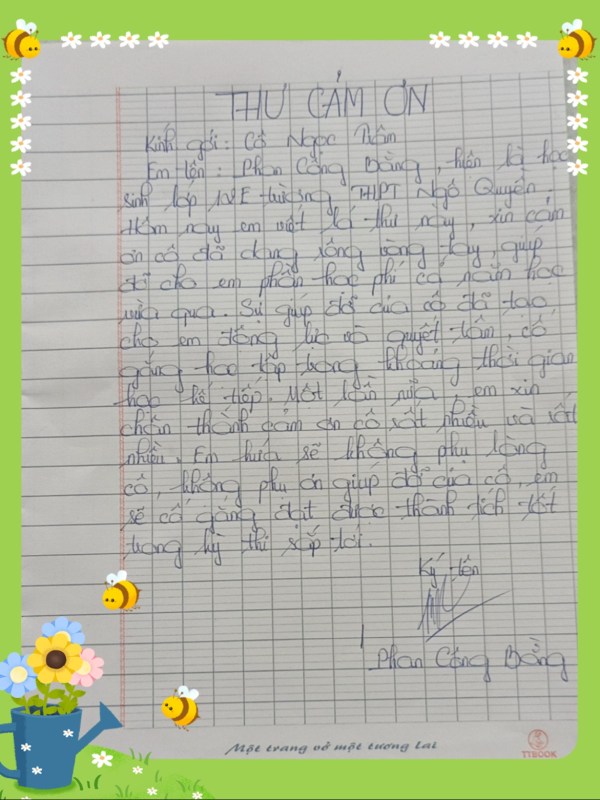 THƯ CẢM ƠN
Kính gởi: Cô Ngọc Trâm
Em tên: Phan Công Bằng, hiện là học
sinh lớp trường THPT Ngô Quyền.
Hôm nay em viết lá thư này, xin cảm
ơn cô đã dang rộng vòng tay, giúp
đỡ cho em phần học phí cả năm học
vừa qua. Sự giúp đỡ của cô đã tạo
cho em động lực và quyết tâm, cố
gắng học tập trong khoảng thời gian
học kế tiếp. Một lần nữa, em xin
chân thành cảm ơn cô rất nhiều và rất
nhiều. Em hứa sẽ không phụ lòng
cô, không phụ ơn giúp đỡ của cô, em
sẽ cố gắng đạt được thành tích tốt
trong kỳ thi sắp tới.
Ký tên
Phan Công Bằng
Một trang vở một tương lai
TTBOOK